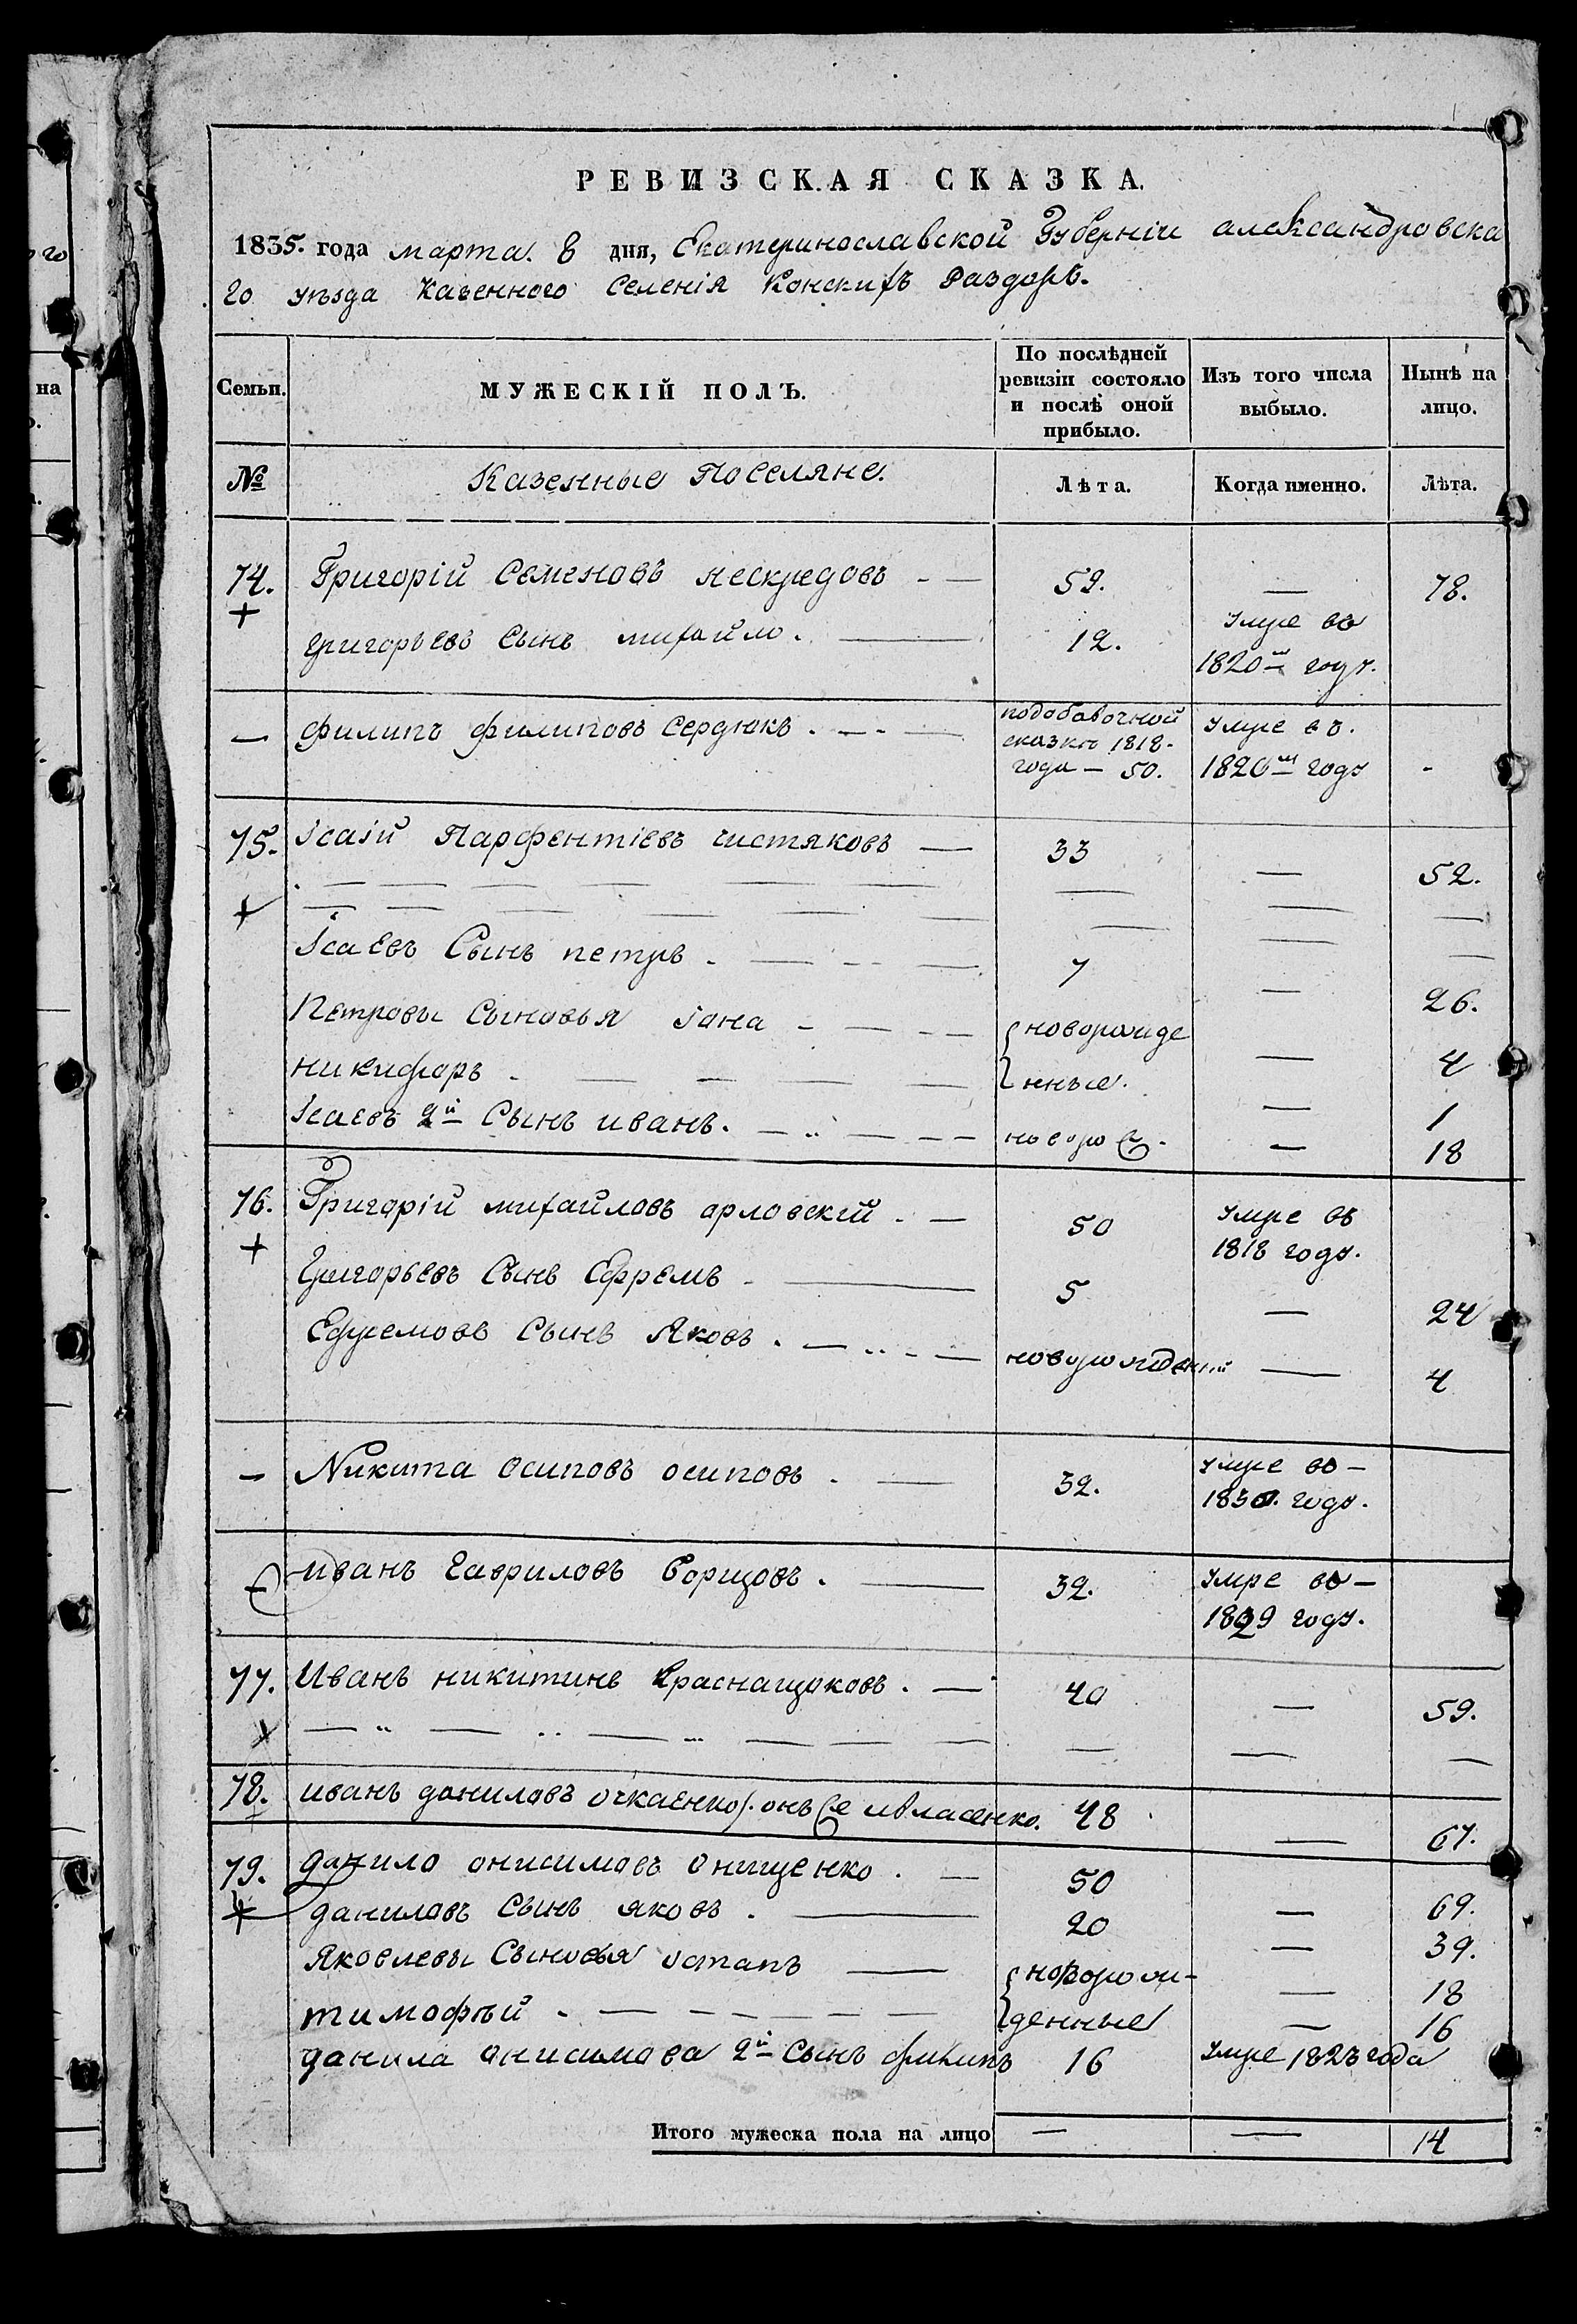 РЕВИЗСКАЯ СКАЗКА.
1835. года марта. 8 дня, Екатеринославской Губерніи александровска
го уѣзда Казенного Селенія Конскихъ Раздоръ.
на
Семьи.
МУЖЕСКІЙ ПОЛЪ.
По послѣдней
ревизіи состояло
и послѣ оной
прибыло.
Изъ того числа
выбыло.
Нынѣ на
лицо.
№
Казенные Поселяне.
Лѣта.
Когда именно.
Лѣта.
74. Григорій Семеновъ нескредовъ - — 52. — 78.
+ григорьевъ Сынъ михайло. — 12. Умре во
1820м году.
— филипъ филиповъ Сердюкъ . — . — подобавочной
сказке 1818.
года — 50. Умре въ.
1820м году -
75. Ісаій Парфентіевъ чистяковъ — 33 — 52.
+
Ісаевъ Сынъ петръ . — 7 — 26.
Петровы Сыновья іона - — новорожде — 4
никифоръ . — нные. — 1
Ісаевъ 2й Сынъ иванъ. — новоро — 18
76. Григорій михайловъ арловскій . — 50 Умре въ
1818 году.
+ Григорьевъ Сынъ Ефремъ - — 5 — 24
Ефремовъ Сынъ Яковъ . — новорожденный — 4
— Никита осиповъ осиповъ . — 32. Умре во —
1830. году.
иванъ Гавриловъ борщовъ . — 32. Умре во —
1829 году.
77. Иванъ никитинъ Краснащоковъ . — 40 — 59.
+
78. иванъ даниловъ очкаенко онъ же ивласенко. 48 — 67.
+
79. данило онисимовъ онищенко . — 50 — 69.
+ даниловъ Сынъ яковъ . — 20 — 39.
Яковлевы Сыновья остапъ — новорож- — 18
тимофѣй . — денные — 16
данила анисимова 2й Сынъ филипъ 16 Умре 1823 года
Итого мужеска пола на лицо — — 14